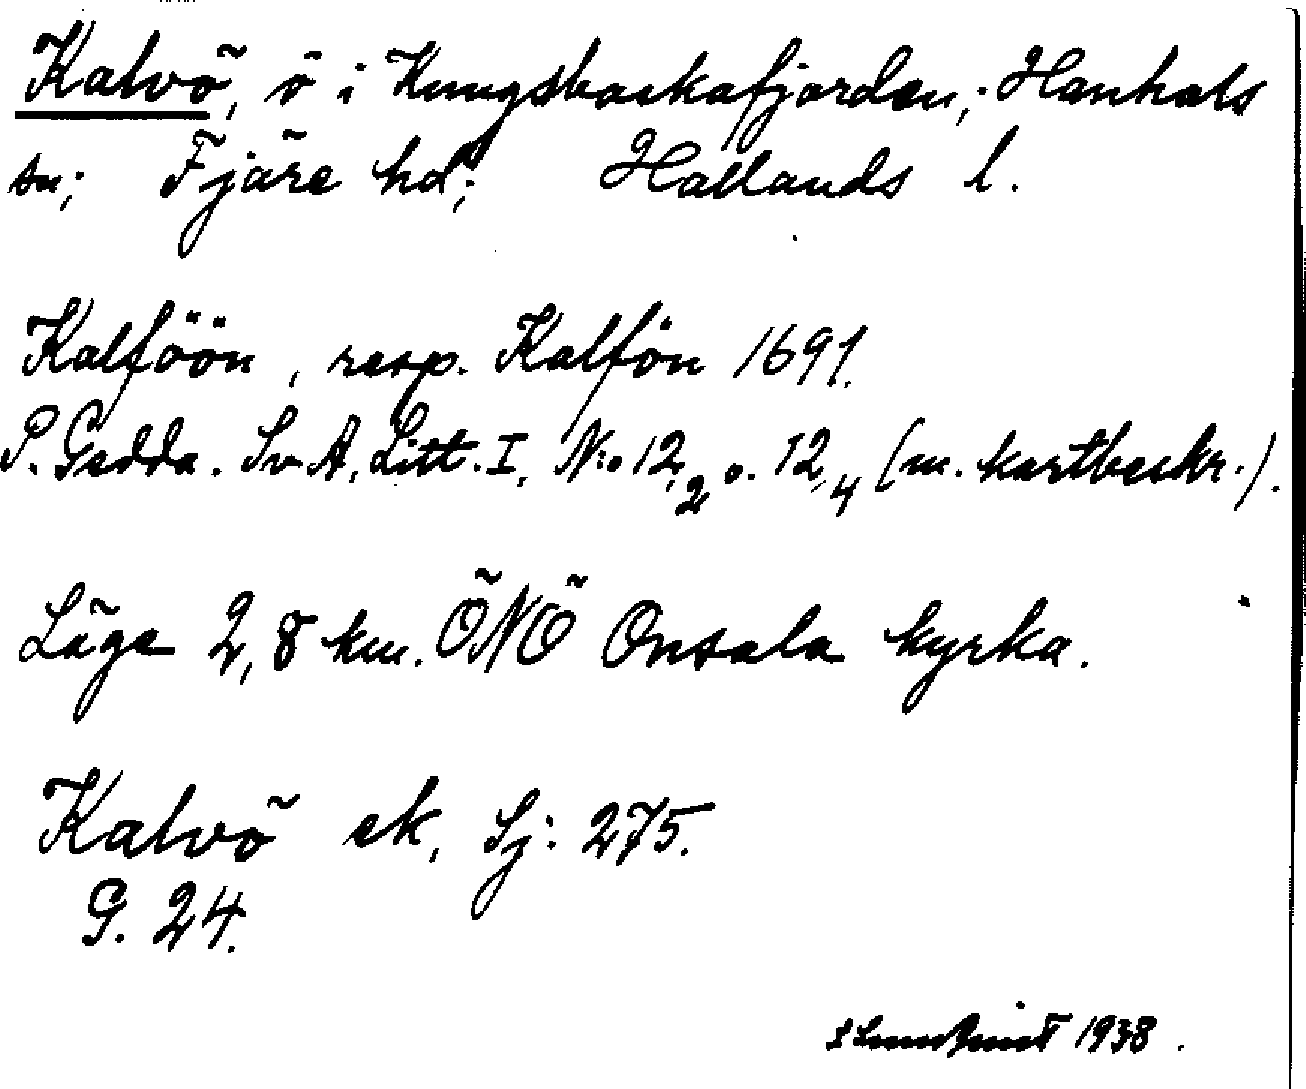 Kalvö, ö i Kungsbackafjorden; Hanhals
sn; Fjäre hd; Hallands l.
Kalföön, resp. Kalfön 1691.
P. Gedda. Sv. A, Litt. I, N:o 12,2 o. 12,4 (m. kartbeskr.).
Läge 2,8 km. ÖNÖ Onsala kyrka.
Kalvö ek, Sj: 275.
G. 24.
S Lundkvist 1938.